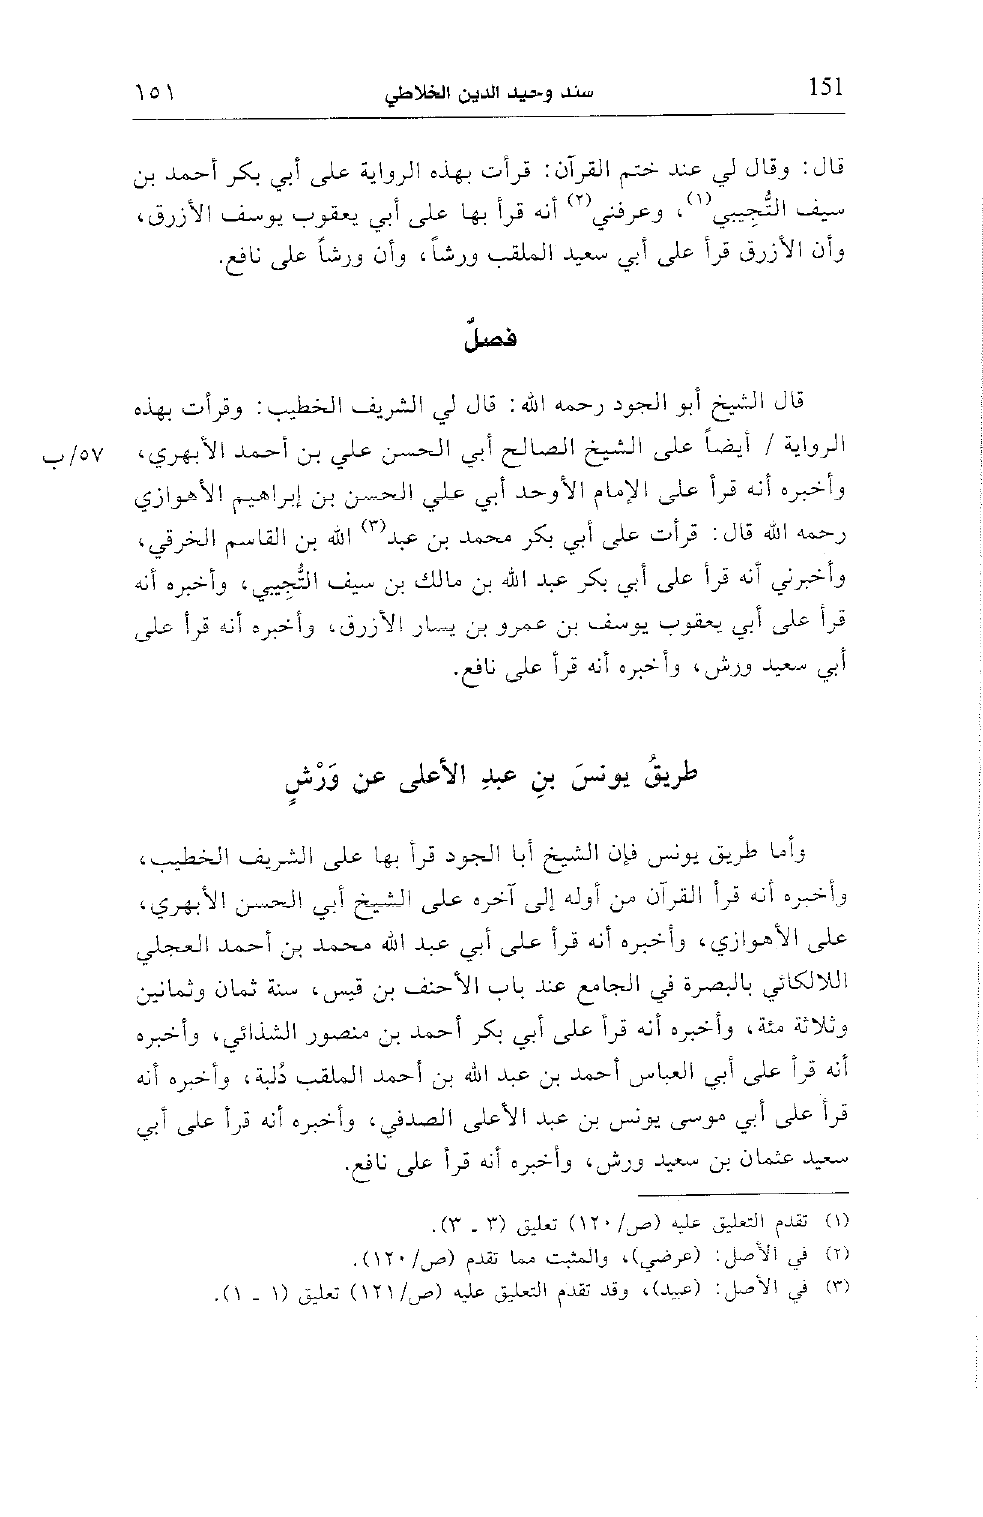 151 سند وحيد الدين الخلاطي ١٥١
قال: وقال لي عند ختم القرآن: قرأت بهذه الرواية على أبي بكر أحمد بن
سيف التُّجِيبي(١)، وعرفني(٢) أنه قرأ بها على أبي يعقوب يوسف الأزرق،
وأن الأزرق قرأ على أبي سعيد الملقب ورشاً، وأن ورشاً على نافع.
فصلٌ
قال الشيخ أبو الجود رحمه الله: قال لي الشريف الخطيب: وقرأت بهذه
الرواية / أيضاً على الشيخ الصالح أبي الحسن علي بن أحمد الأبهري، ٥٧/ب
وأخبره أنه قرأ على الإمام الأوحد أبي علي الحسن بن إبراهيم الأهوازي
رحمه الله قال: قرأت على أبي بكر محمد بن عبد(٣) الله بن القاسم الخرقي،
وأخبرني أنه قرأ على أبي بكر عبد الله بن مالك بن سيف التُّجِيبي، وأخبره أنه
قرأ على أبي يعقوب يوسف بن عمرو بن يسار الأزرق، وأخبره أنه قرأ على
أبي سعيد ورش، وأخبره أنه قرأ على نافع.
طريقُ يونسَ بنِ عبدِ الأعلى عن وَرْشٍ
وأما طريق يونس فإن الشيخ أبا الجود قرأ بها على الشريف الخطيب،
وأخبره أنه قرأ القرآن من أوله إلى آخره على الشيخ أبي الحسن الأبهري،
على الأهوازي، وأخبره أنه قرأ على أبي عبد الله محمد بن أحمد العجلي
اللالكائي بالبصرة في الجامع عند باب الأحنف بن قيس، سنة ثمان وثمانين
وثلاثة مئة، وأخبره أنه قرأ على أبي بكر أحمد بن منصور الشذائي، وأخبره
أنه قرأ على أبي العباس أحمد بن عبد الله بن أحمد الملقب دُلبة، وأخبره أنه
قرأ على أبي موسى يونس بن عبد الأعلى الصدفي، وأخبره أنه قرأ على أبي
سعيد عثمان بن سعيد ورش، وأخبره أنه قرأ على نافع.
(١) تقدم التعليق عليه (ص/١٢٠) تعليق (٣ ـ ٣).
(٢) في الأصل: (عرضي)، والمثبت مما تقدم (ص/١٢٠).
(٣) في الأصل: (عبيد)، وقد تقدم التعليق عليه (ص/١٢١) تعليق (١ ـ ١).